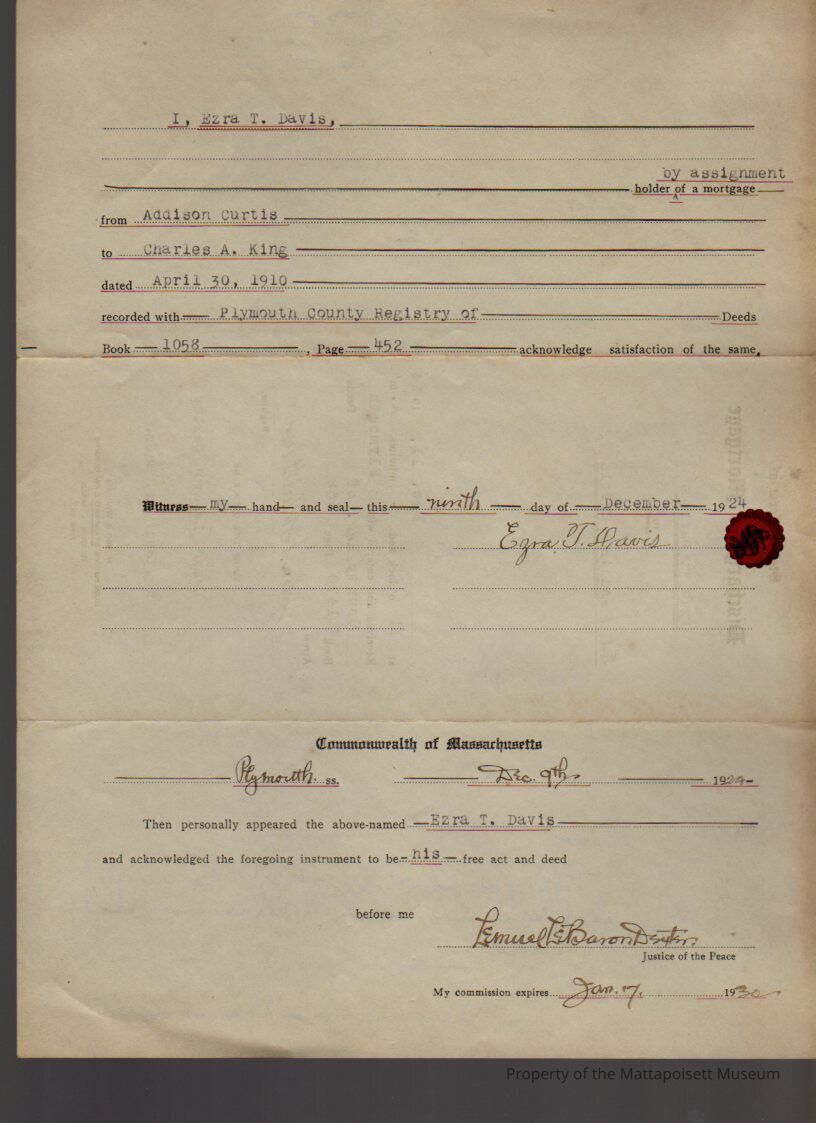 I, Ezra T. Davis,
by assignment
holder of a mortgage
from Addison Curtis
to Charles A. King
dated April 30, 1910
recorded with Plymouth County Registry of Deeds
Book 1058, Page 452 acknowledge satisfaction of the same.
Witness my hand and seal this ninth day of December 1924
Ezra T. Davis
Commonwealth of Massachusetts
Plymouth ss. Dec. 9th 1924
Then personally appeared the above-named Ezra T. Davis
and acknowledged the foregoing instrument to be his free act and deed
before me
Lemuel LeBaron Dexter
Justice of the Peace
My commission expires Jan. 17, 1930
Property of the Mattapoisett Museum